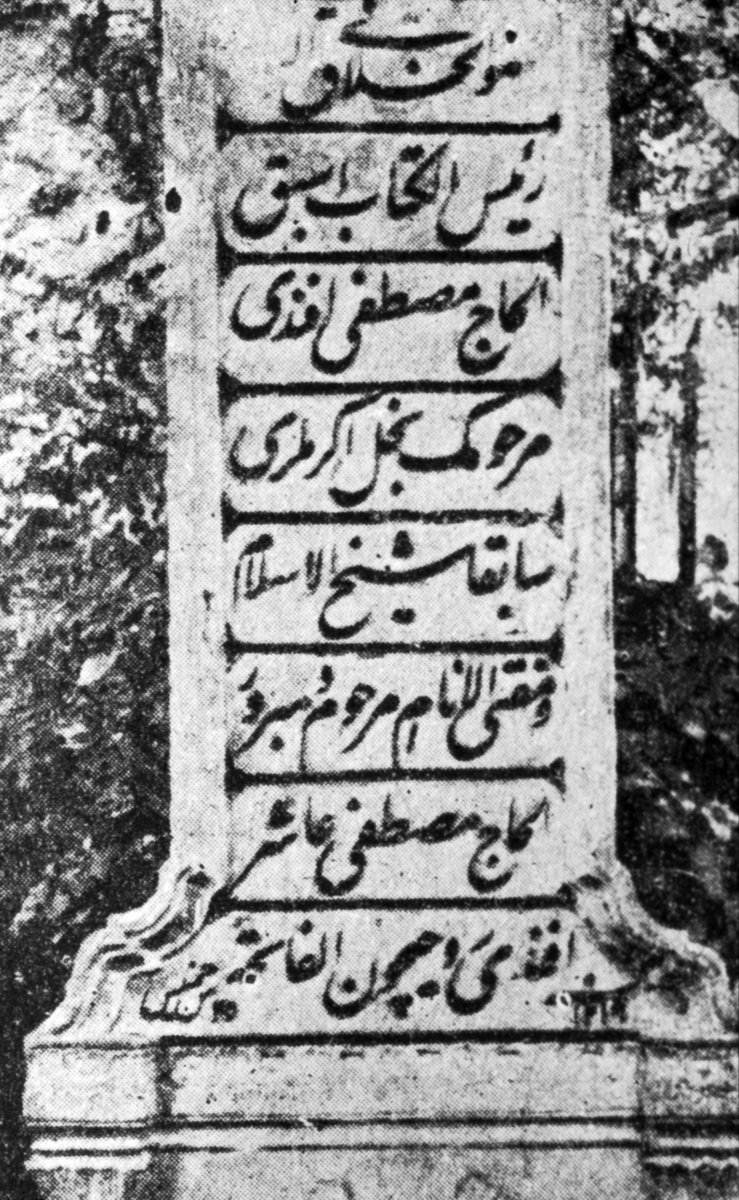 هو الخلاق الباقی
رئیس الکتاب اسبق
الحاج مصطفی افندی
مرحومک نجل اکرملری
سابقا شیخ الاسلام
و مفتی الانام مرحوم و مبرور
الحاج مصطفی عاشر
افندی روحیچون الفاتحه